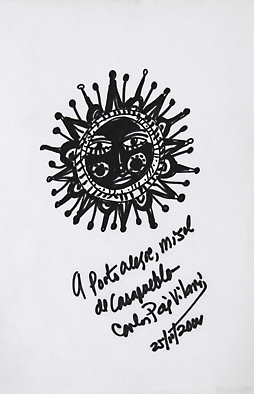 A Porto Alegre, mi sol
de Casapueblo
Carlos Páez Vilaró